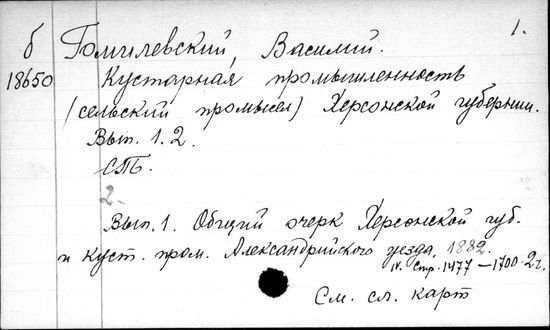 1.
б Гомилевский, Василий.
18650 Кустарная промышленность
(сельский промысел) Херсонской губернии.
Вып. 1. 2.
СПб.
2.
Вып. 1. Общий очерк Херсонской губ.
и куст. пром. Александрийского уезда, 1882.
IV. Стр. 1477 — 1700. 2 т.
См. сл. карт